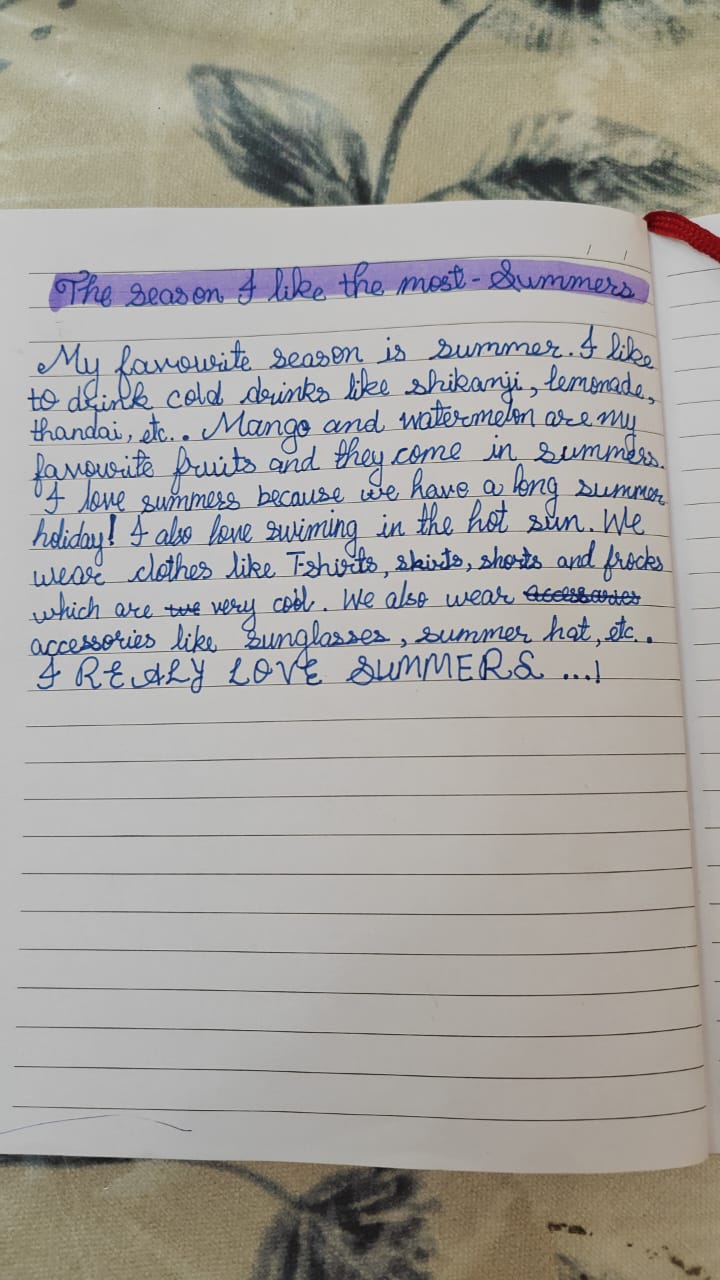 The season I like the most - Summers
My favourite season is summer. I like
to drink cold drinks like shikanji, lemonade,
thandai, etc.. Mango and watermelon are my
favourite fruits and they come in summers.
I love summers because we have a long summer
holiday! I also love swiming in the hot sun. We
wear clothes like T-shirts, skirts, shorts and frocks
which are very cool. We also wear accessaries
accessories like sunglasses, summer hat, etc..
I REALY LOVE SUMMERS ...!